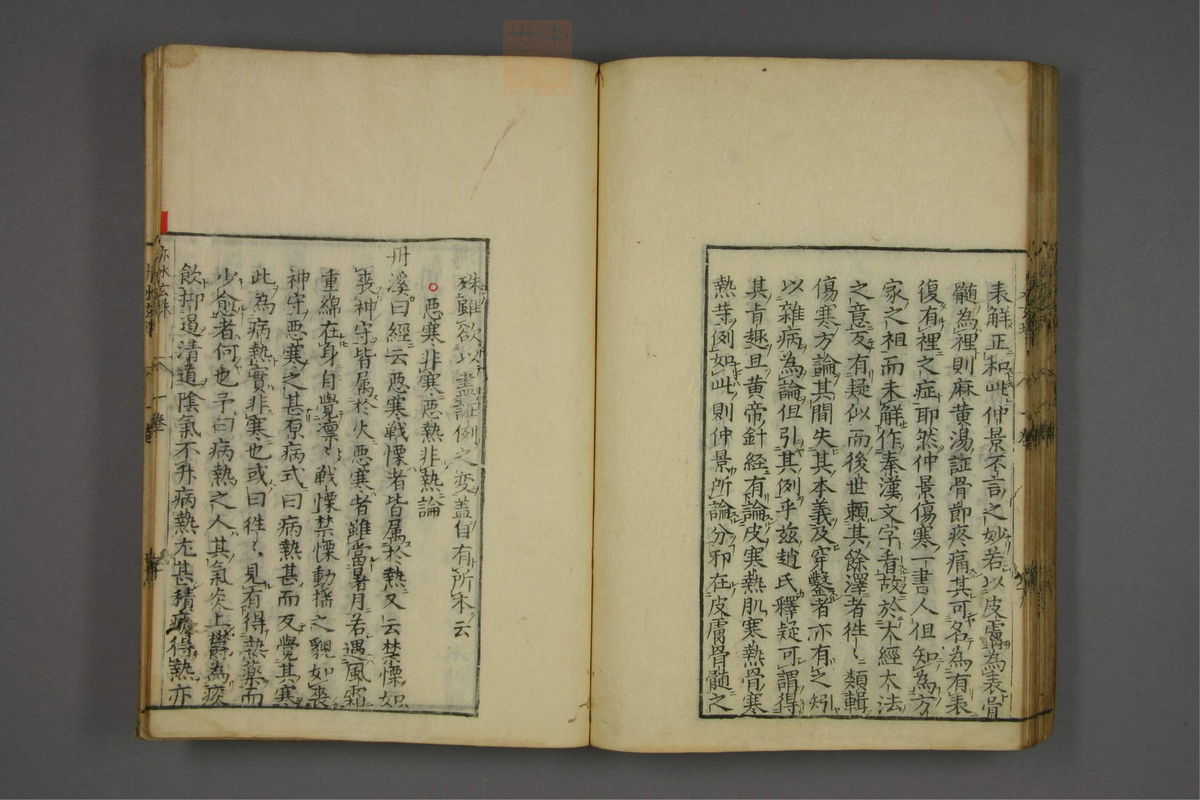 表解正和此仲景不言之妙若以皮膚為表骨
髓為裡則麻黄湯証骨節疼痛其可名為有表
復有裡之症耶然仲景傷寒一書人但知為方
家之祖而未解作秦漢文字看故於大經大法
之意反有疑似而後世頼其餘澤者徃〻類輯
傷寒方論其間失其本義及穿鑿者亦有之矧
以雜病為論但引其例乎兹趙氏釋疑可謂得
其肯趣且黄帝針経有論皮寒熱肌寒熱骨寒
熱等例如此則仲景所論分邪在皮膚骨髓之
殊雖欲以盡証例之変盖自有所本云
惡寒非寒惡熱非熱論
丹溪曰經云惡寒戦慄者皆属於熱又云禁慄如
喪神守皆属於火惡寒者雖當暑月若遇風霜
重綿在身自覺凛〻戦慄禁慄動揺之貌如喪
神守惡寒之甚原病式曰病熱甚而反覺其寒
此為病熱實非寒也或曰徃〻見有得熱薬而
少愈者何也予曰病熱之人其氣炎上欝為痰
飲抑遏清道陰氣不升病熱尤甚積痰得熱亦